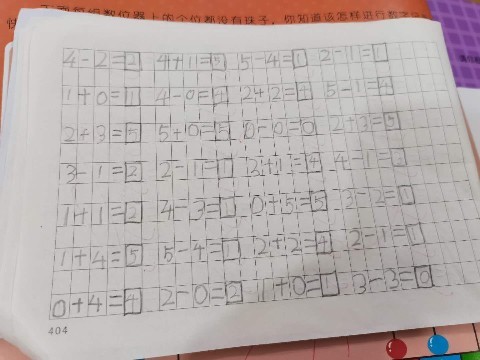 位器上的个位都没有珠子，你知道该怎样进行
4-2=2 4+1=5 5-4=1 2-1=1
1+0=1 4-0=4 2+2=4 5-1=4
2+3=5 5+0=5 0-0=0 2+3=5
3-1=2 2-1=1 3+1=4 4-1=3
1+1=2 4-3=1 0+5=5 3-2=1
1+4=5 5-4=1 2+2=4 2-1=1
0+4=4 2-0=2 1+0=1 3-3=0
404